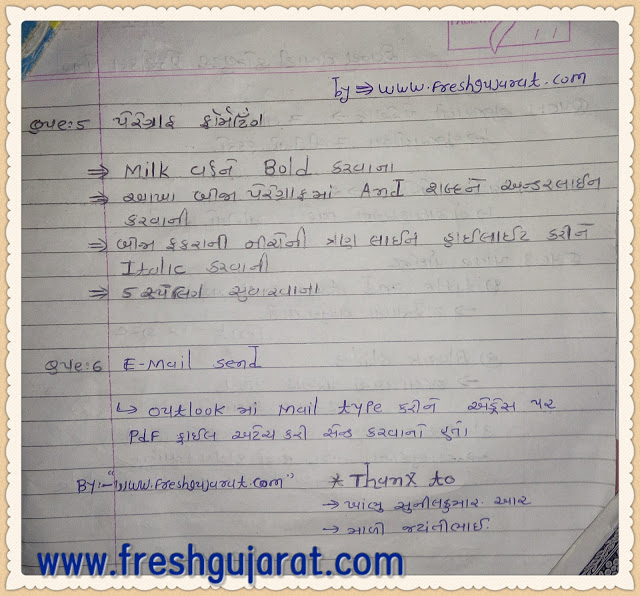 by ⇒ www.freshgujarat.com
Que:5 પેરેગ્રાફ ફોર્મેટિંગ
⇒ Milk વર્ડને Bold કરવાના
⇒ આખા બીજા પેરેગ્રાફમાં And શબ્દને અન્ડરલાઈન
કરવાની
⇒ બીજા ફકરાની નીચેની ત્રણ લાઈન હાઈલાઈટ કરીને
Italic કરવાની
⇒ 5 સ્પેલિંગ સુધારવાના
Que:6 E-Mail send
↳ outlook માં Mail type કરીને એડ્રેસ પર
Pdf ફાઈલ એટેચ કરી સેન્ડ કરવાનો હતો
By:- "www.freshgujarat.com" * Thanx to
→ ખાંભુ સુનીલકુમાર આર
→ માળી જયંતીભાઈ.
www.freshgujarat.com